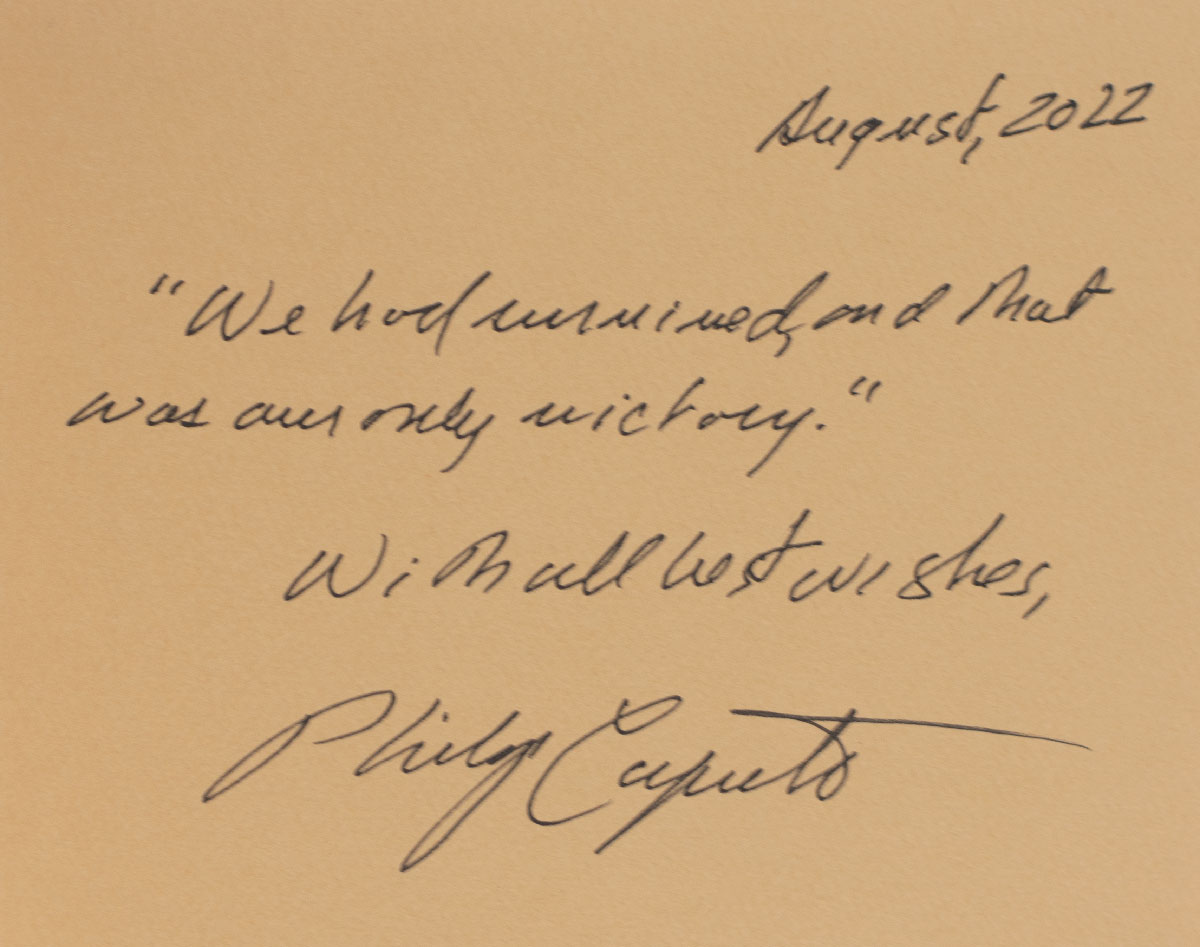 August, 2022
"We had survived, and that
was our only victory."
With all best wishes,
Philip Caputo